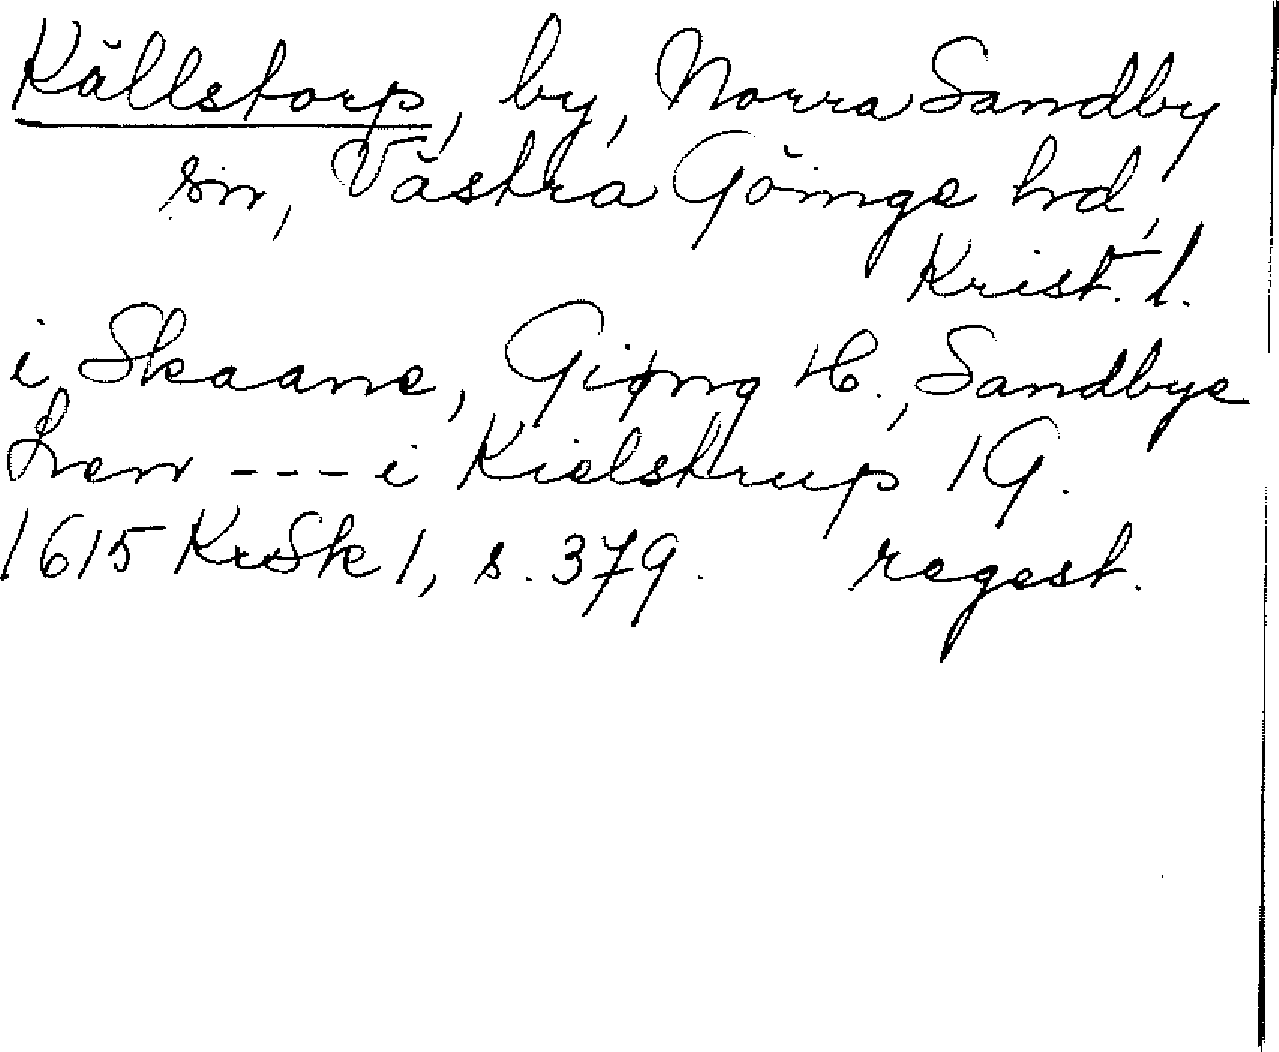 Källstorp, by, Norra Sandby
sn, Västra Göinge hd,
Krist. l.
i Skaane, Giøng H., Sandbye
Len --- i Kielstrup 1 G.
1615 KrSk 1, s. 379. regest.